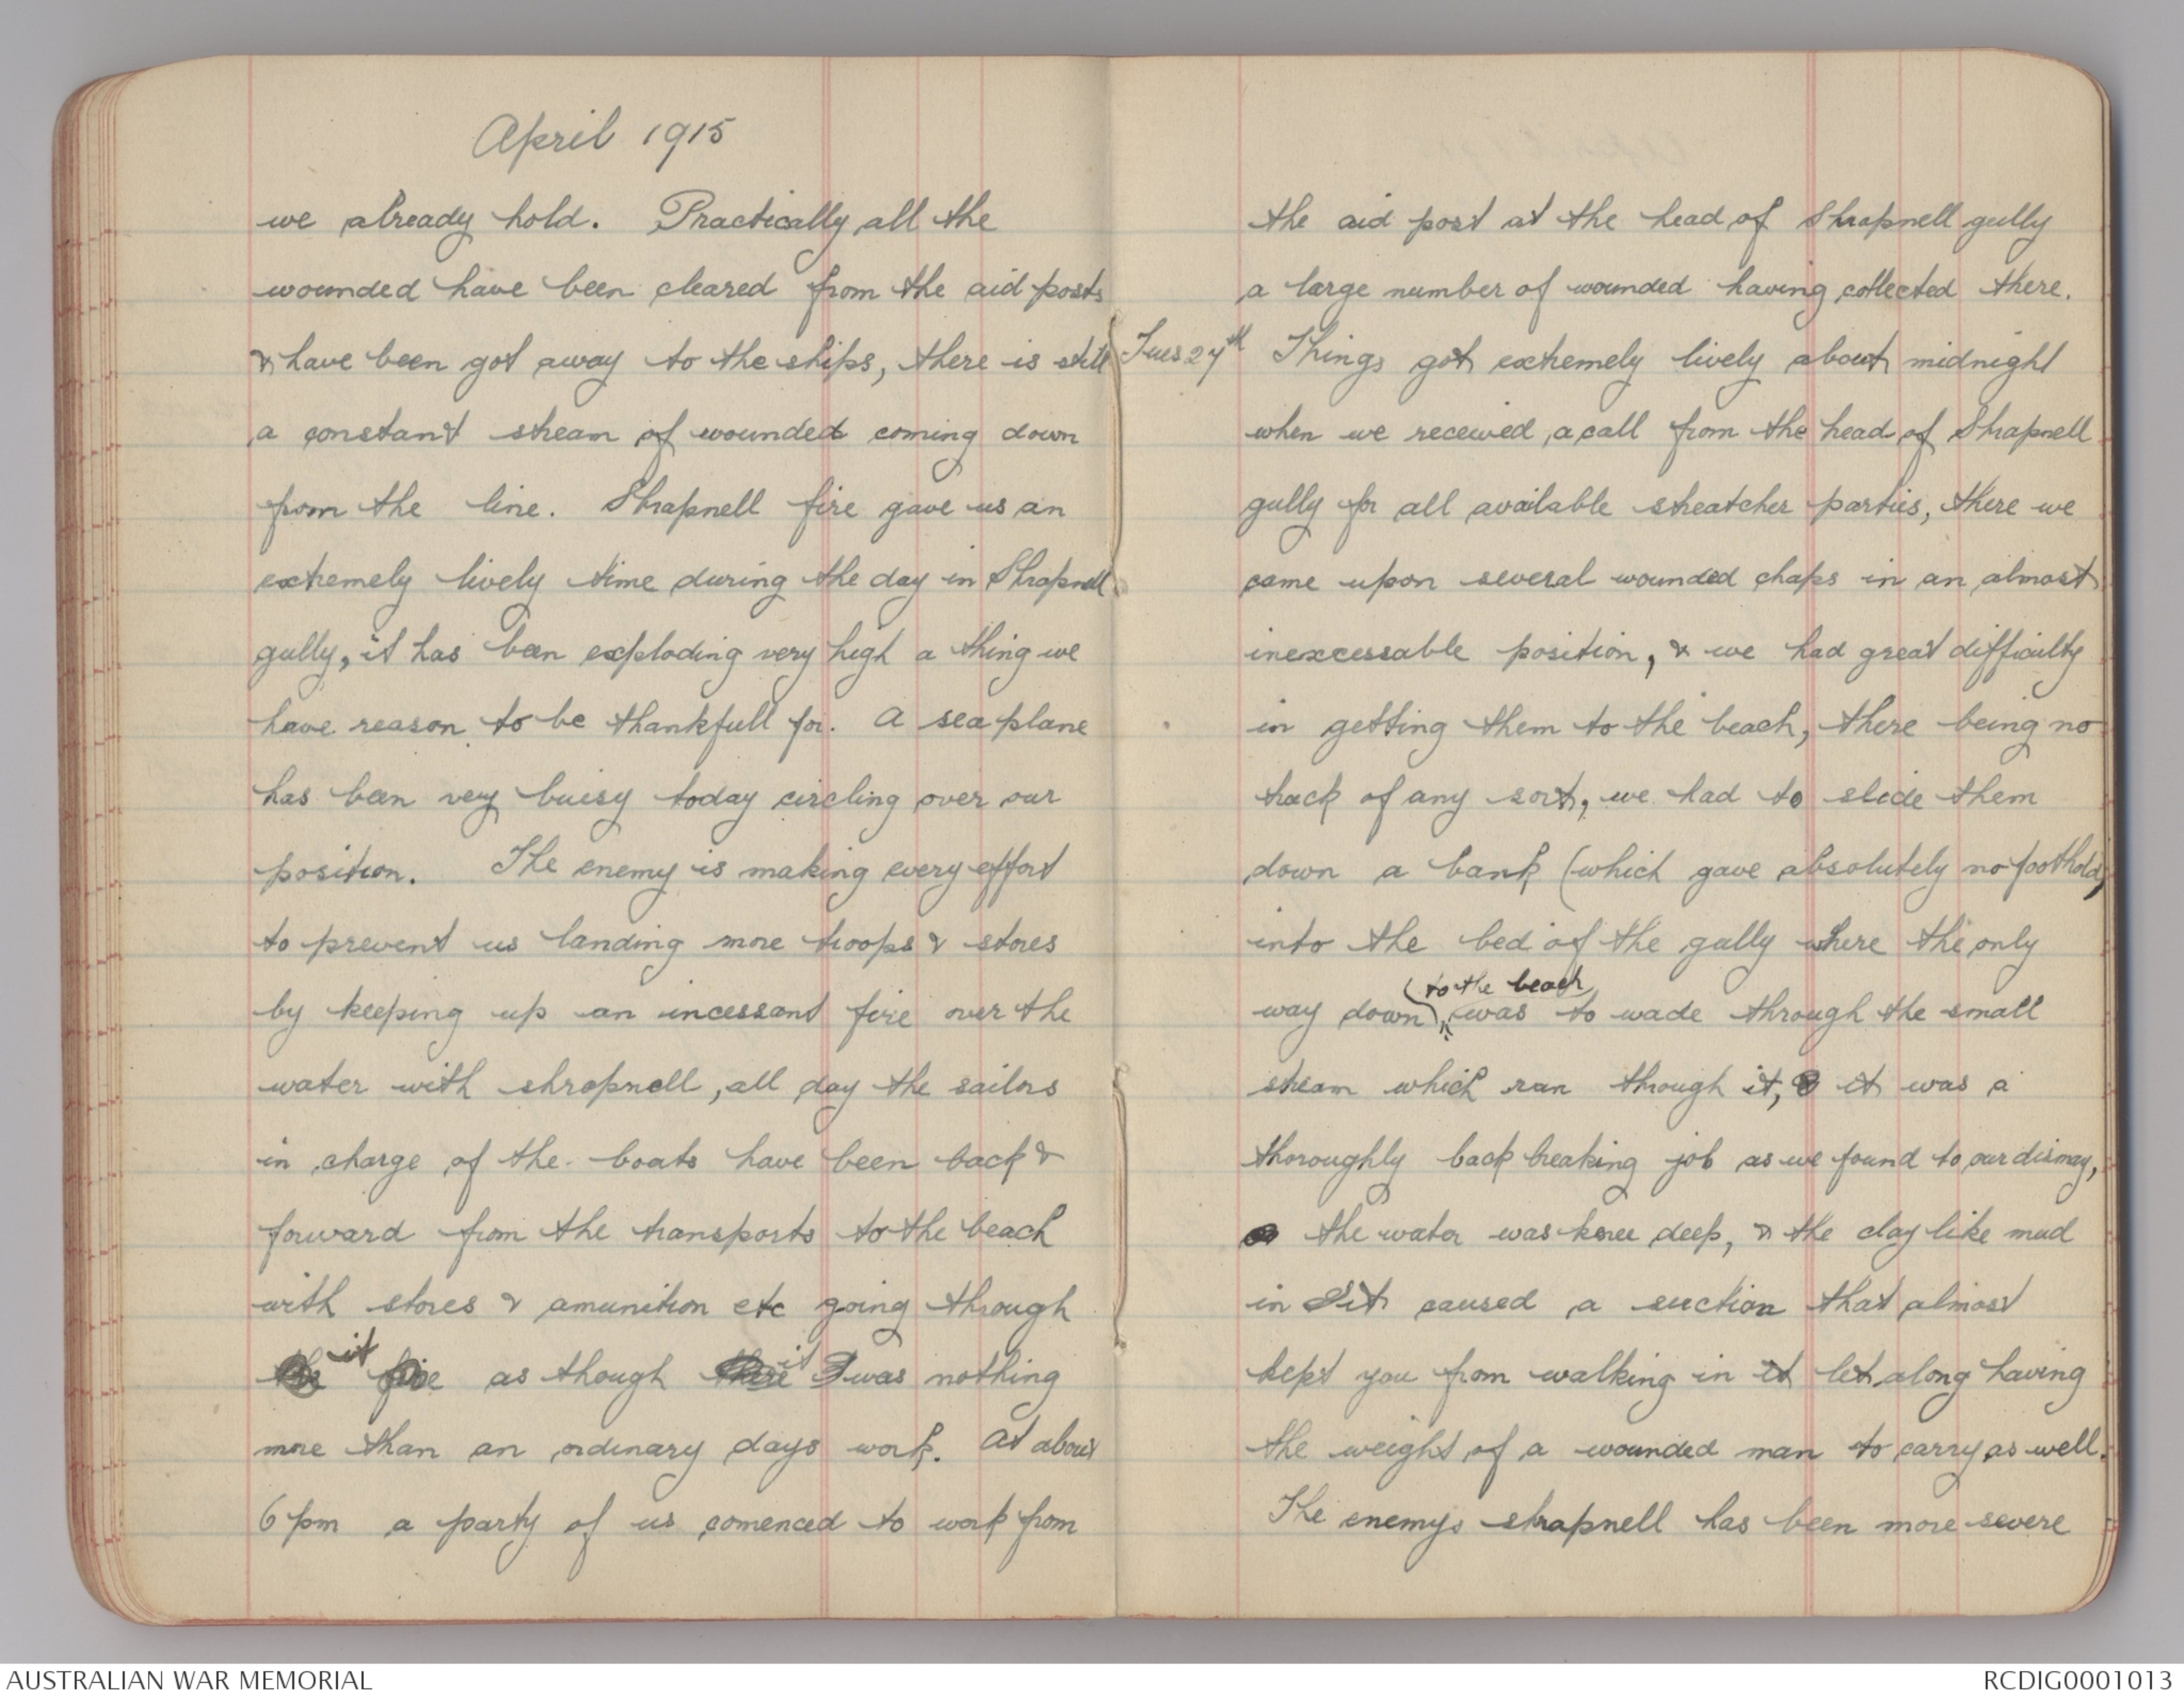 April 1915
we already hold. Practically all the
wounded have been cleared from the aid posts
& have been got away to the ships, there is still
a constant stream of wounded coming down
from the line. Shrapnell fire gave us an
extremely lively time during the day in Shrapnell
gully, it has been exploding very high a thing we
have reason to be thankfull for. A sea plane
has been very buisy today circling over our
position. The enemy is making every effort
to prevent us landing more troops & stores
by keeping up an incessant fire over the
water with shrapnell, all day the sailors
in charge of the boats have been back &
forward from the transports to the beach
with stores & amunition etc going through
the it fire as though there it was nothing
more than an ordinary days work. At about
6 pm a party of us comenced to work from
the aid post at the head of Shrapnell gully
a large number of wounded having collected there.
Tues 27th Things got extremely lively about midnight
when we received a call from the head of Shrapnell
gully for all available streatcher parties, there we
came upon several wounded chaps in an almost
inexcessable position, & we had great difficulty
in getting them to the beach, there being no
track of any sort, we had to slide them
down a bank (which gave absolutely no foothold)
into the bed of the gully where the only
way down (to the beach) was to wade through the small
stream which ran through it, it was a
thoroughly back breaking job as we found to our dismay,
the water was knee deep, & the clay like mud
in it caused a suction that almost
kept you from walking in it let along having
the weight of a wounded man to carry as well.
The enemys shrapnell has been more severe
AUSTRALIAN WAR MEMORIAL
RCDIG0001013